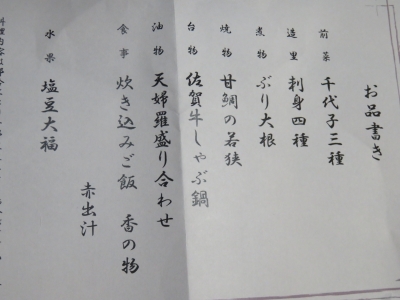 お品書き
前菜 千代子三種
造里 刺身四種
煮物 ぶり大根
焼物 甘鯛の若狭
台物 佐賀牛しゃぶ鍋
油物 天婦羅盛り合わせ
食事 炊き込みご飯 香の物
赤出汁
水菓 塩豆大福